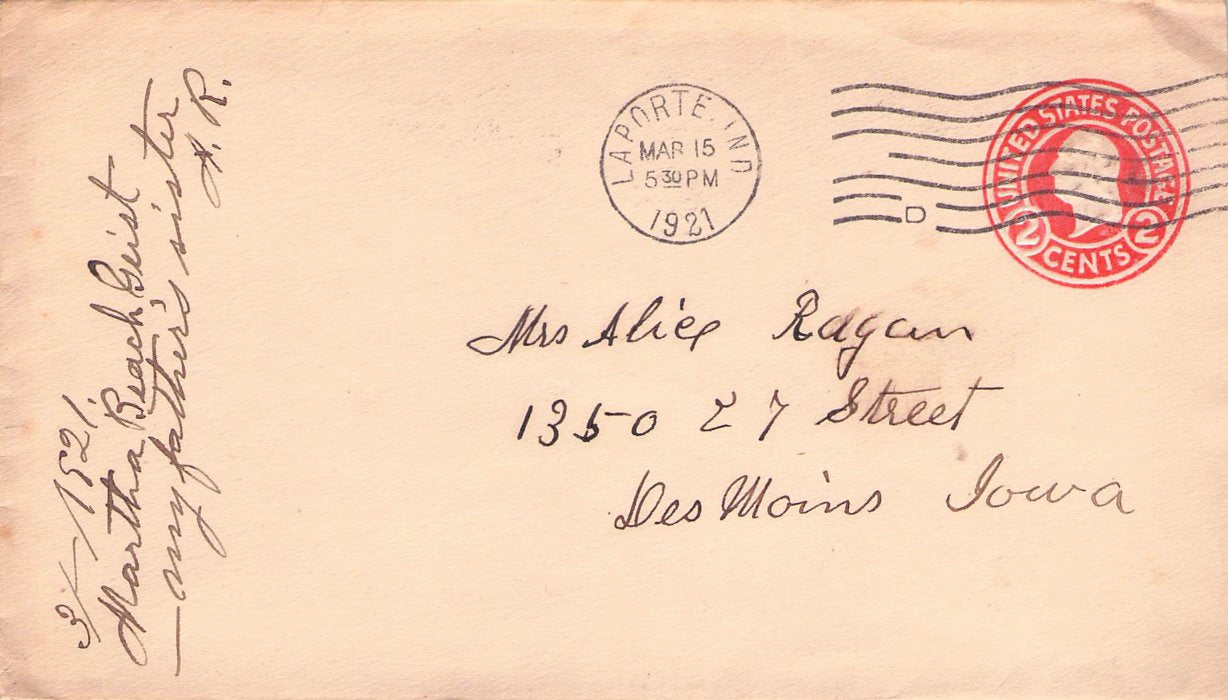 LAPORTE. IND
MAR 15
5 30 PM
1921
D
UNITED STATES POSTAGE
2 CENTS 2
Mrs Alice Ragan
1350 27 Street
Des Moins Iowa
3/-/1921.
Martha Beach Geist
— my father's sister
A. R.